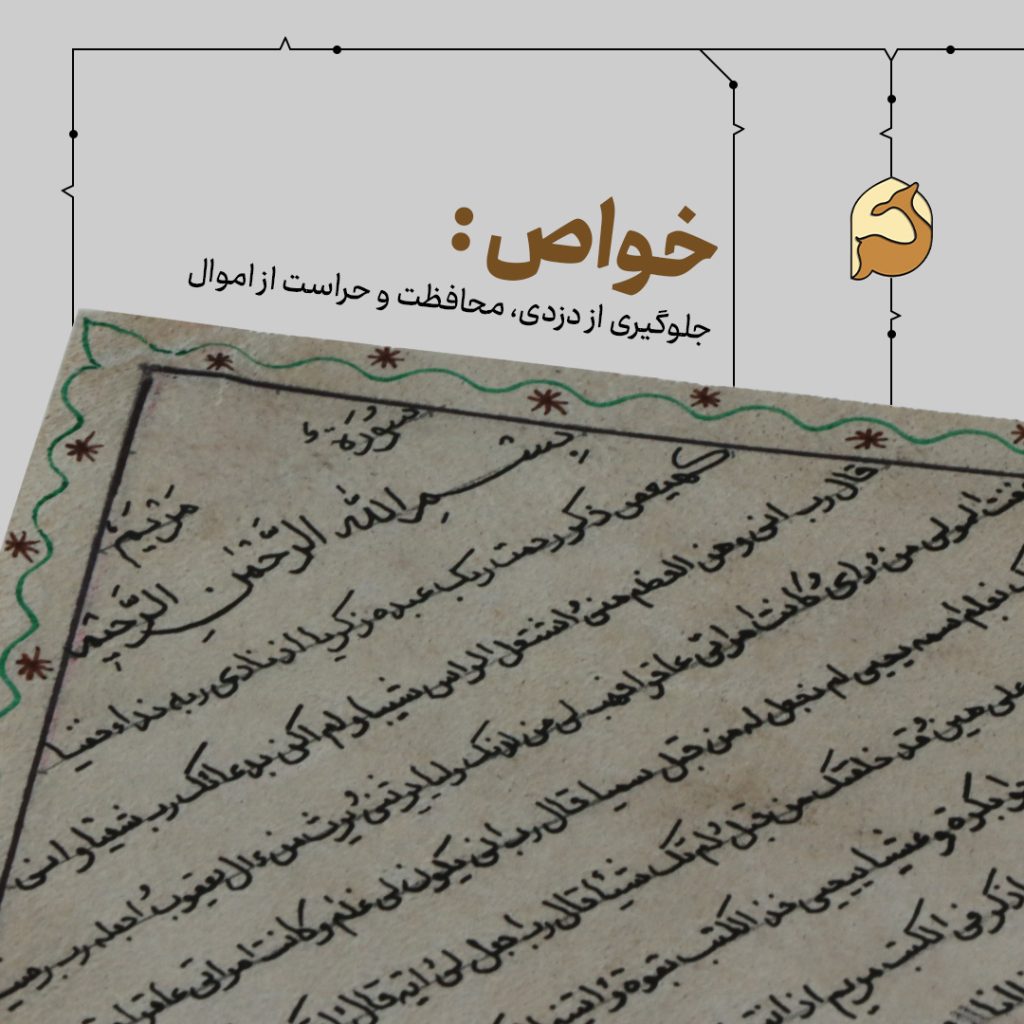 خواص:
جلوگیری از دزدی، محافظت و حراست از اموال
سُورَة
مَرْيَمَ
بِسْمِ اللهِ الرَّحْمٰنِ الرَّحِيْمِ
كهيعص ذكر رحمت ربك عبده زكريا اذ نادى ربه نداء خفيا
قال رب انى وهن العظم منى واشتعل الراس شيبا ولم اكن بدعائك رب شقيا وانى
خفت الموالى من وراى وكانت امراتى عاقرا فهب لى من لدنك وليا يرثنى ويرث من ءال يعقوب واجعله رب رضيا
بغلم اسمه يحيى لم نجعل له من قبل سميا قال رب انى يكون لى غلم وكانت امراتى عاقرا
على هين وقد خلقتك من قبل ولم تك شيئا قال رب اجعل لى ءاية قال
بكرة وعشيا ييحيى خذ الكتب بقوة وءاتينه
اذكر فى الكتب مريم اذ